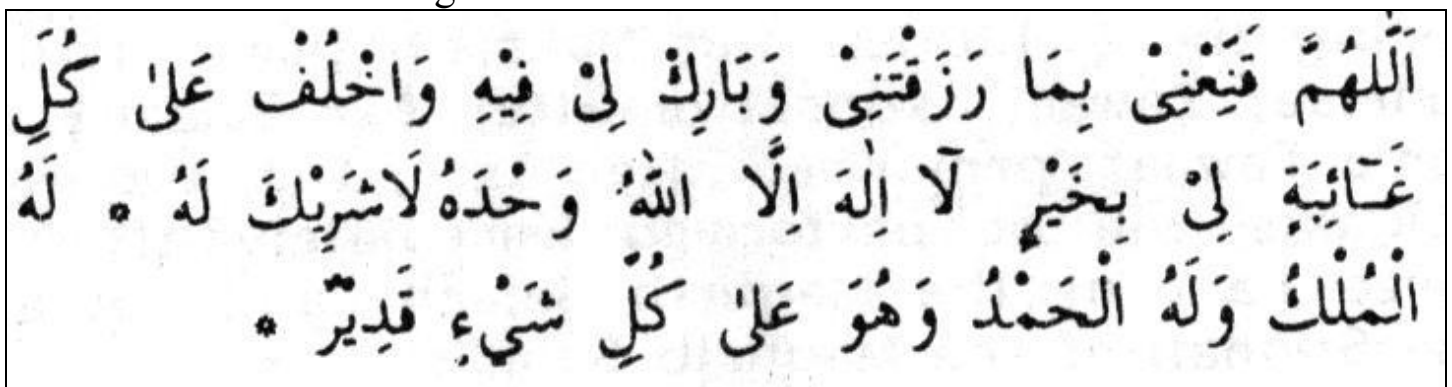 اَللّٰهُمَّ قَنِّعْنِىْ بِمَا رَزَقْتَنِىْ وَبَارِكْ لِىْ فِيْهِ وَاخْلُفْ عَلٰى كُلِّ
غَـآئِبَةٍ لِىْ بِخَيْرٍ لَآ اِلٰهَ اِلَّا اللّٰهُ وَحْدَهُ لَاشَرِيْكَ لَهُ * لَهُ
الْمُلْكُ وَلَهُ الْحَمْدُ وَهُوَ عَلٰى كُلِّ شَيْءٍ قَدِيْرٌ *